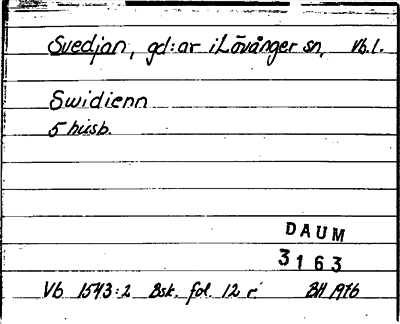 Svedjan, gd:ar i Lövånger sn, Vb.l.
Swidienn
5 husb.
DAUM
3163
Vb 1543:2 Bsk. fol. 12 r. BH 1976